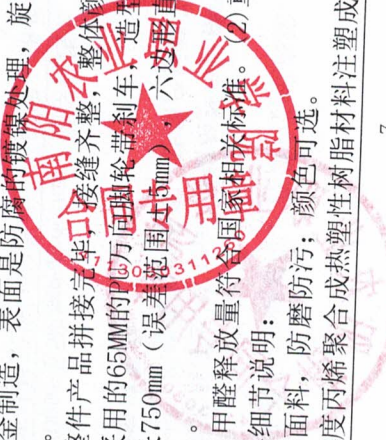 金制造，表面是防腐的镀镍处理，旋
。
整件产品拼接完毕，接缝齐整，整体颜
用的65MM的PU万向脚轮带刹车，造型
750mm（误差范围±5mm），六边形直
。
甲醛释放量符合国家相关标准。（2）
细节说明：
面料，防磨防污；颜色可选。
度丙烯聚合成热塑性树脂材料注塑成
南阳农业职业学院
合同专用章